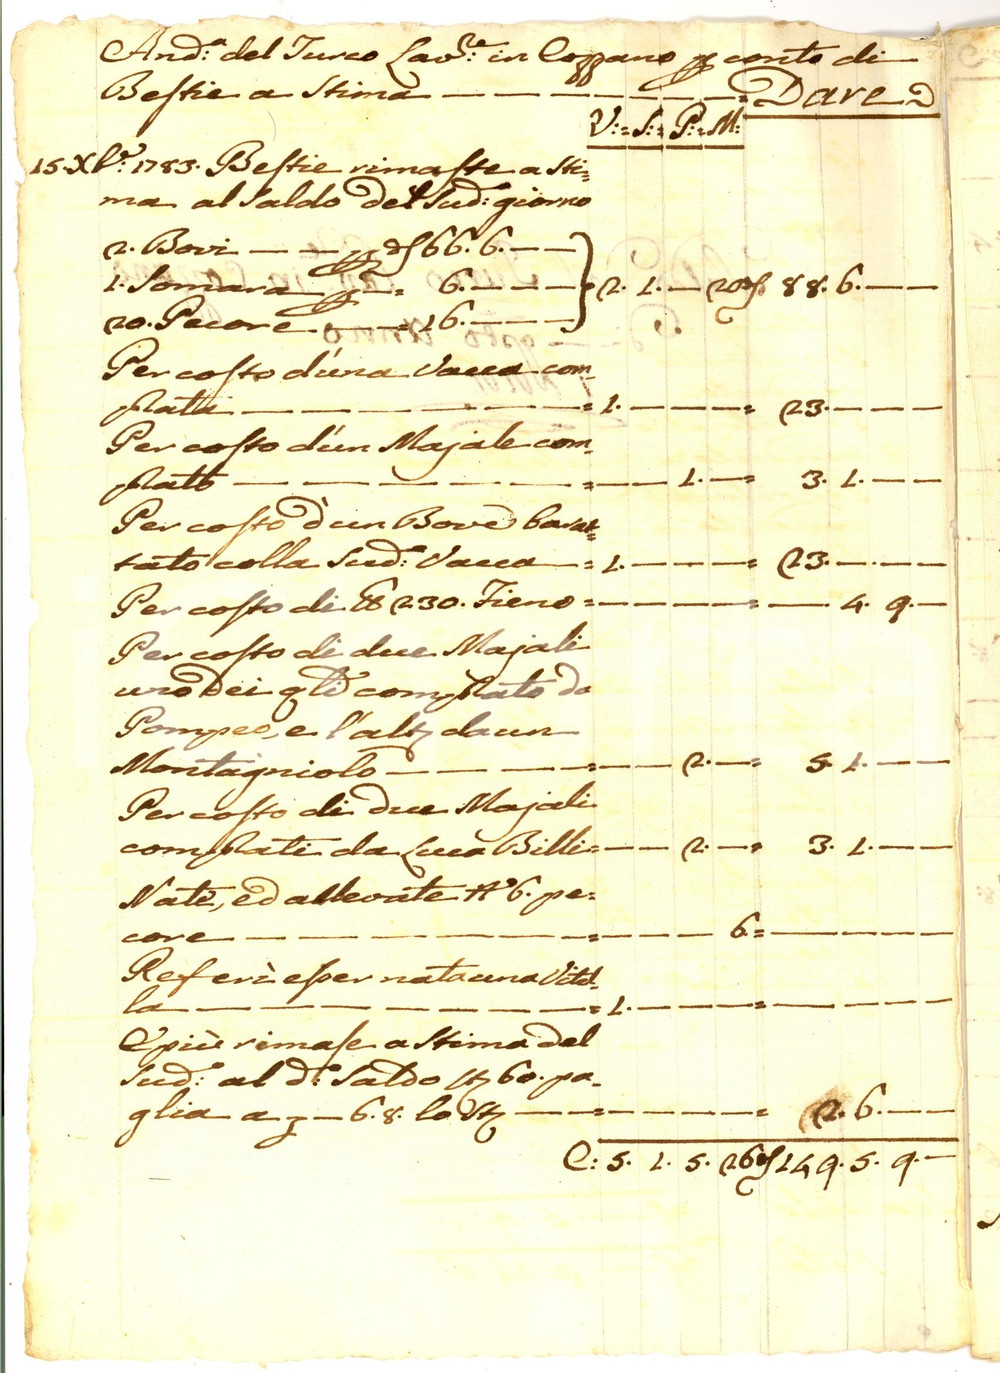 And:ª del Turco Lav:re in Coppano p conto di
Bestie a Stima — — — — Dare D
V: = S: = P: = M:
15. Xbre: 1783. Bestie rimaste a Sti=
ma al Saldo del Sud:º giorno
2. Bovi — — p 66. 6. — —
1. Somara p — = 6. — — —
20. Pecore — = 16. — — — } 2. 1. — 20 88. 6. — —
Per costo d'una Vacca com=
prata — — — — = 1. — — — = 23. — — —
Per costo d'un Majale com=
prato — — — — = — — 1. — = 3. 1. — —
Per costo d'un Bove barat=
tato colla Sud:ª Vacca — = 1. — — — = 23. — — —
Per costo di ℔ 230. Fieno = — — — — = — 4. 9. —
Per costo di due Majali
uno dei qli comprato da
Pompeo, e l'altro da un
Montagniolo — — — = — — 2. — = 5. 1. — —
Per costo di due Majali
comprati da Luca Billi = — — 2. — = 3. 1. — —
Nate, ed allevate Nº 6. pe=
core — — — — = — — — 6. = — — — —
Referì esser nata una Vitel=
la — — — — = 1. — — — = — — — —
E più rimase a Stima del
Sud:º al d:º Saldo 60. pa=
glia a — 6. 8. lo — = — — — — = 2. 6. — —
C: 5. 1. 5. 26 149. 5. 9. —